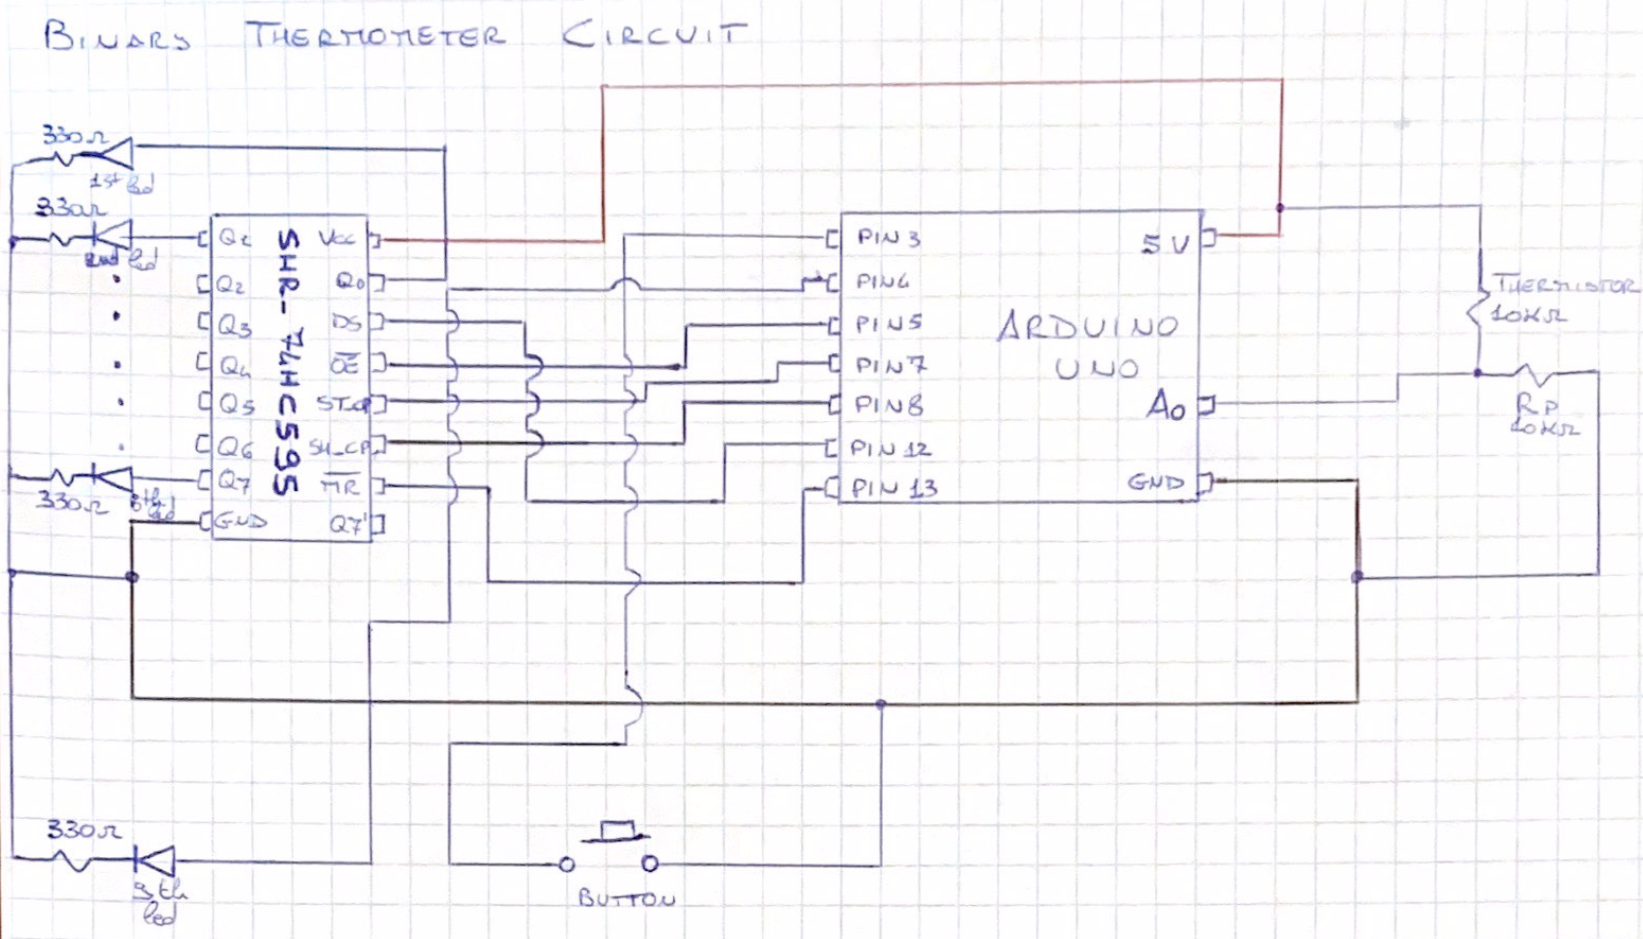 BINARY THERMOMETER CIRCUIT
330Ω
1st led
330Ω
2nd led
330Ω
8th led
330Ω
9th led
SHR-74HC595
Q1
Q2
Q3
Q4
Q5
Q6
Q7
GND
Vcc
Q0
DS
OE
ST_CP
SH_CP
MR
Q7'
ARDUINO
UNO
PIN 3
PIN4
PIN5
PIN7
PIN8
PIN 12
PIN 13
5V
A0
GND
THERMISTOR
10KΩ
RP
10KΩ
BUTTON